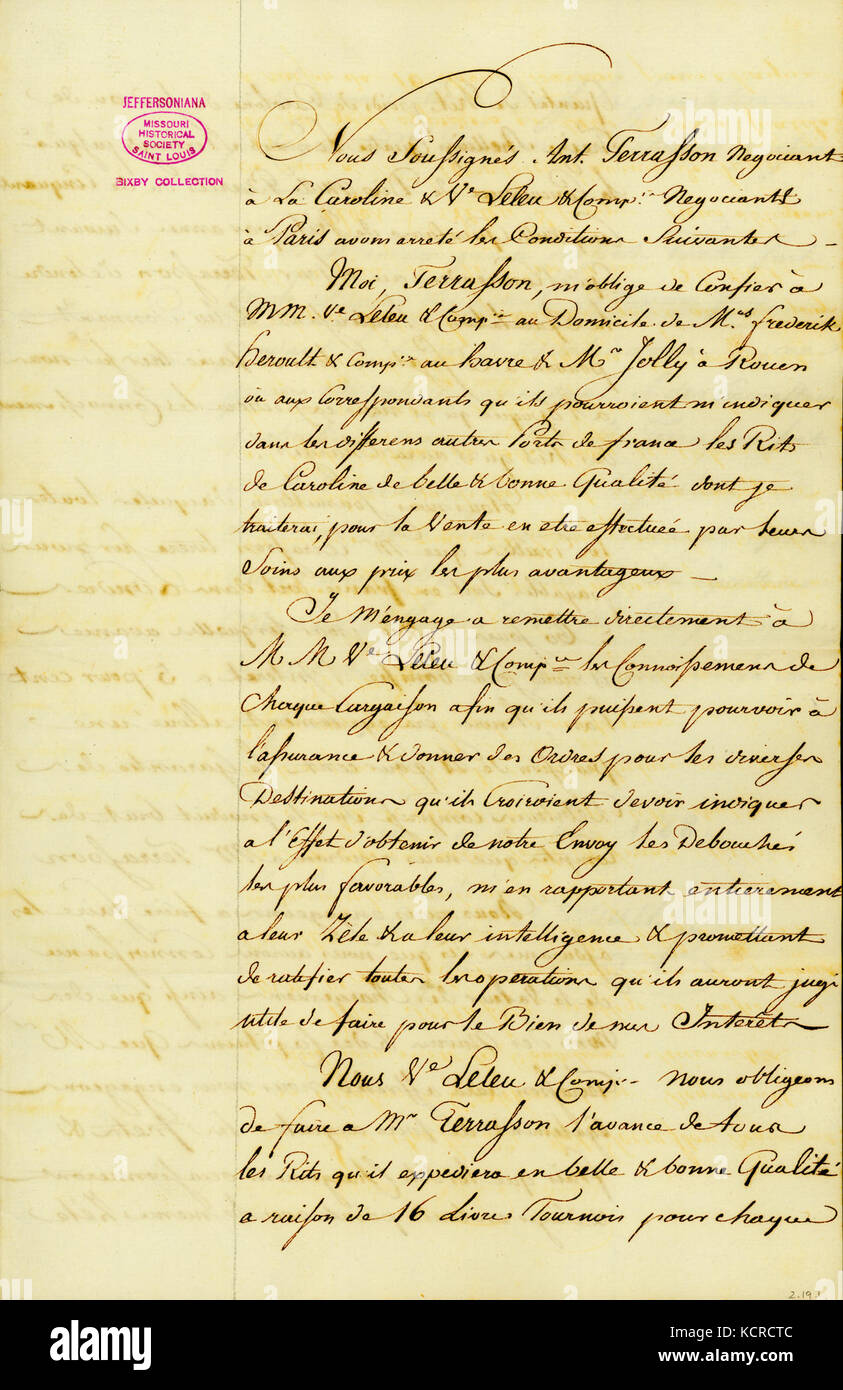 JEFFERSONIANA
MISSOURI
HISTORICAL
SOCIETY
SAINT LOUIS
BIXBY COLLECTION
Nous Soussignés Ant. Terrasson Negociant
à La Caroline & Ve Leleu & Comp.ie Negociants
à Paris avons arreté les Conditions Suivantes —
Moi, Terrasson, m'oblige de Confier à
MM. Ve Leleu & Comp.ie au Domicile de M.rs frederik
heroult & Comp.ie au havre & Mr Jolly à Rouen
ou aux Correspondants qu'ils pourroient m'indiquer
dans les differens autres Ports de france les Rits
de Caroline de belle & bonne Qualité dont je
traiterai, pour la Vente en etre effectueé par leurs
Soins aux prix les plus avantageux —
Je M'engage a remettre directement à
MM Ve Leleu & Comp.ie les Connoissemens de
Chaque Cargaison afin qu'ils puissent pourvoir à
l'assurance & donner des Ordres pour les diverses
Destinations qu'ils Croiroient devoir indiquer
a l'Effet d'obtenir de notre Envoy les Debouchés
les plus favorables, m'en rapportant entierement
a leur Zèle & a leur intelligence & promettant
de ratifier toutes les operations qu'ils auront jugé
utile de faire pour le Bien de nos Interêts
Nous Ve Leleu & Comp.ie nous obligeons
de faire a Mr Terrasson l'avance de tous
les Rits qu'il expediera en belle & bonne Qualité
a raison de 16 Livres Tournois pour chaque
alamy
alamy
Image ID: KCRCTC
www.alamy.com